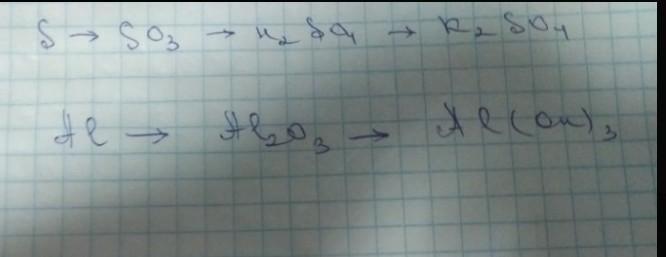 S → SO₃ → H₂SO₄ → K₂SO₄
Al → Al₂O₃ → Al(OH)₃